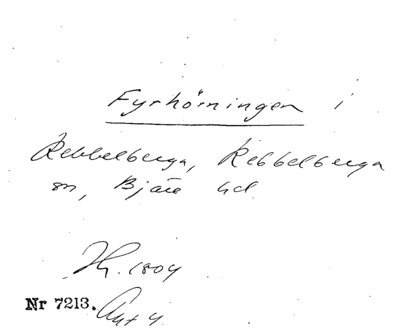 Fyrhörningen i
Rebbelberga, Rebbelberga
sn, Bjäre hd
Hy. 1804
Nr 7213. Akt 4.